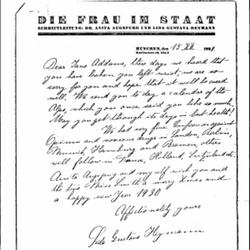 DIE FRAU IM STAAT
SCHRIFTLEITUNG: DR. ANITA AUGSPURG UND LIDA GUSTAVA HEYMANN
MÜNCHEN, den 15 XII 192
Dear Jane Addams, these days we heard that
you have broken your left wrist, we are so
sorry for you and hope that it will be used
well. We send you to day a calendar of the
Alps, which you once said you like so much.
May you get through its days in best health!
We had any fine Conferences against
Opinion and modern in London, Berlin,
Munich, Hamburg and Bremen others
will follow in France, Holland, Switzerland.
Anita Augspurg and my self wish you and
the dear Miss Smith a merry Xmas and
a happy new Year 1930
Affectionately yours
Lida Gustava Heymann